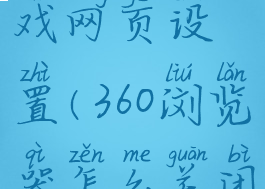 戏网页设
zhì liú lǎn
置(360浏览
qì zěn me guān bì
器怎么关闭